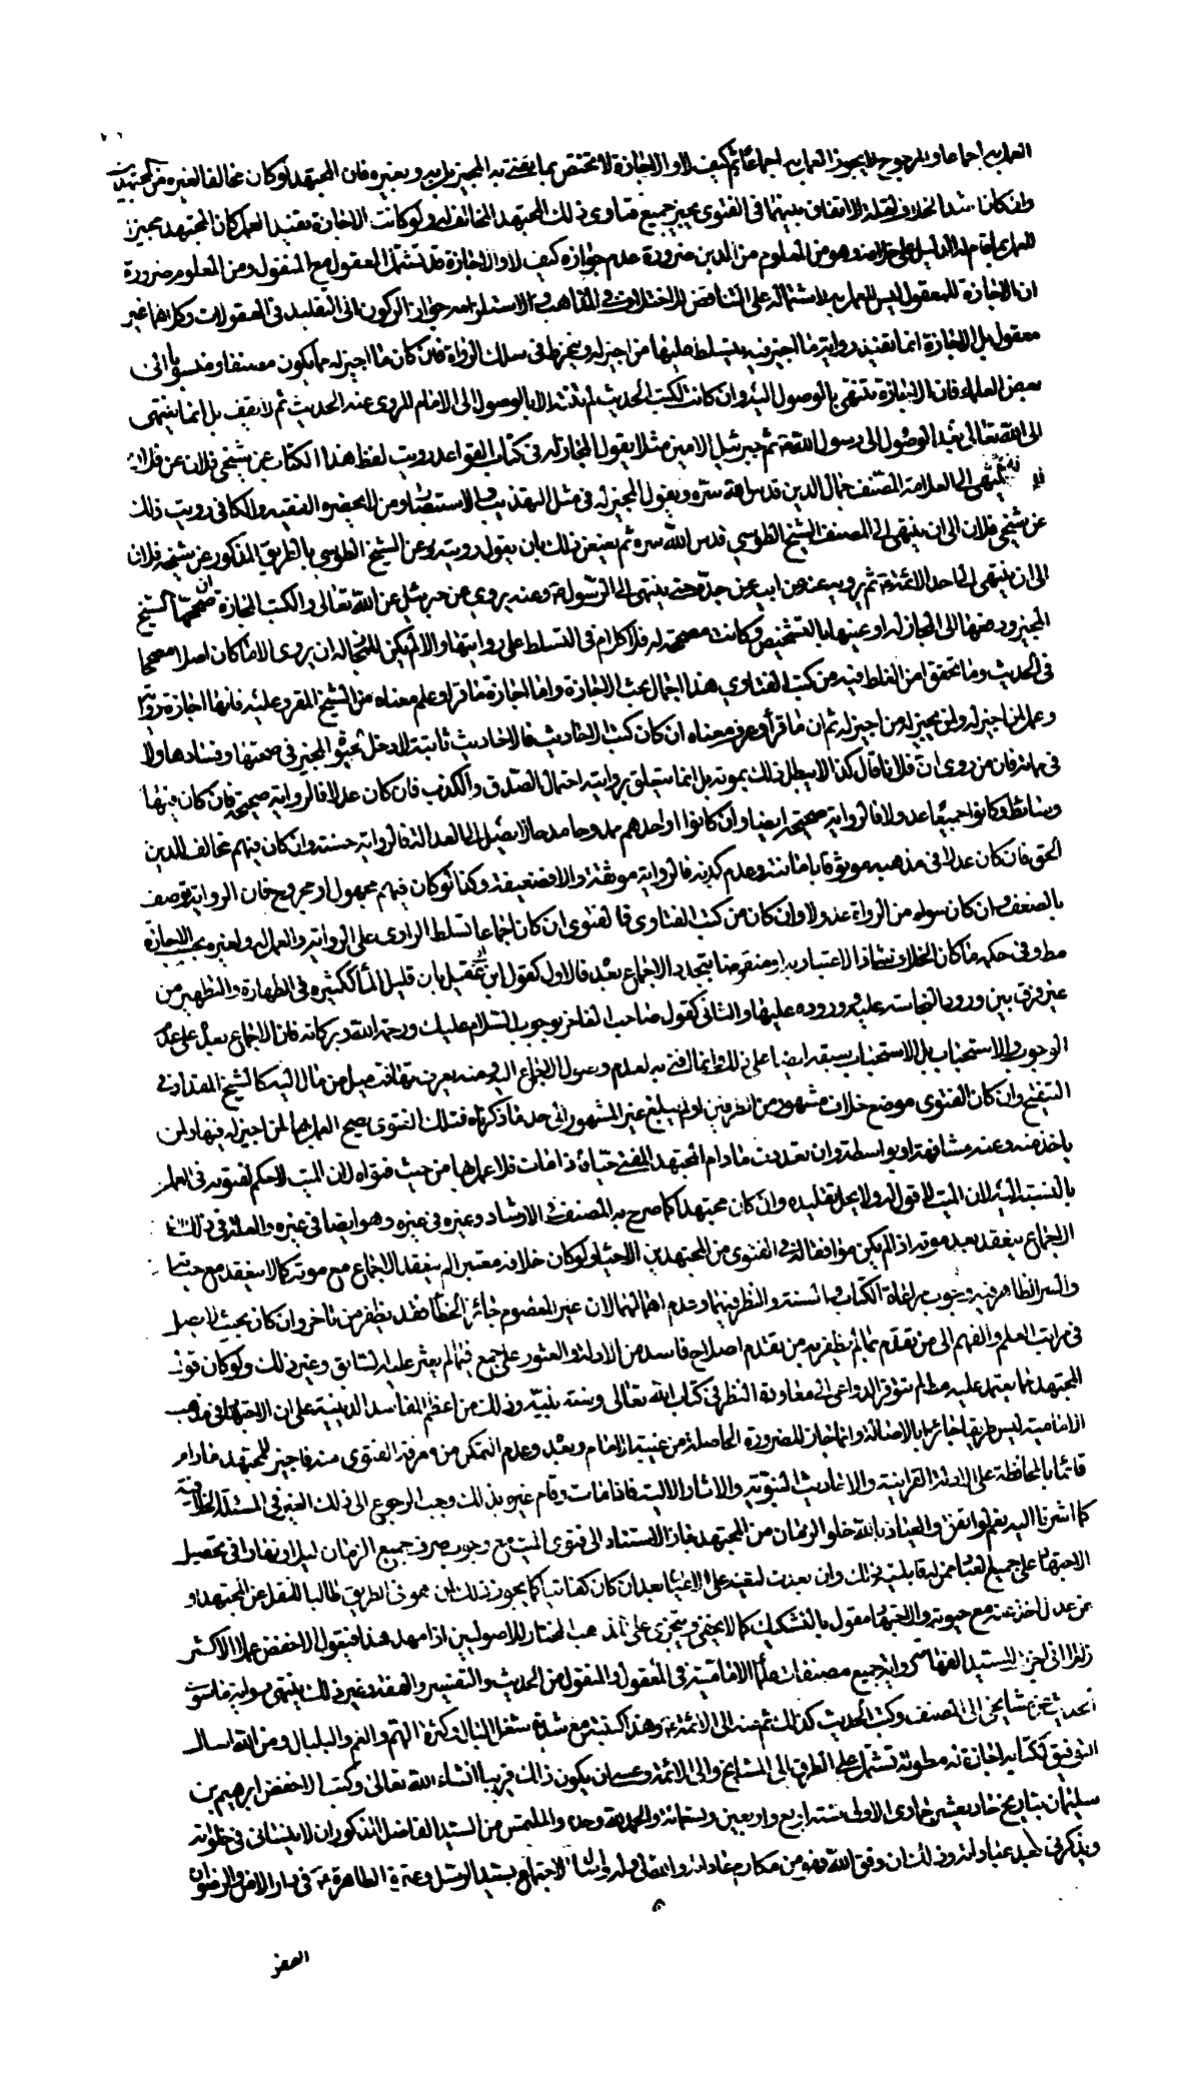 العمل به اجماعا والمرجوح لا يجوز العمل به اجماعا ثم كيف لا والاجازة لا تختص بما يفتى به المجيز بل به وبغيره فان المجتهد لو كان مخالفا لغيره من المجتهدين
وان كان شد الخلاف لقلة الاتفاق بينهما في الفتوى يجيز جميع فتاوى ذلك المجتهد المخالف له ولو كانت الاجازة تفيد العمل كان المجتهد مجيزا
للعمل بما قام الدليل على خلافه وهو من المعلوم من الدين ضرورة عدم جوازه كيف لا والاجازة قد تشتمل المعقول مع المنقول ومن المعلوم ضرورة
ان الاجازة للمعقول ليس للعمل به لاشتماله على التناقض للاختلاف في المذاهب و لاستلزامه جواز الركون الى التقليد في المعقولات وكلاهما غير
معقول بل الاجازة انما تفيد رواية ما اجيز فيه يتسلط عليها من اجيز له وينخرط في سلك الرواة فان كان ما اجيز له مما يكون مصنفا ومنسوبا الى
بعض العلماء فان الاجازة تنتهي بالوصول اليه وان كانت لكتب الحديث لم تنته الا بالوصول الى الامام المروى عنه الحديث ثم لا يقف بل انما ينتهى
الى الله تعالى بعد الوصول الى رسول الله ثم جبرئيل الامين مثلا يقول المجاز له في كتاب القواعد رويت لفظ هذا الكتاب عن شيخي فلان عن فلان
ينتهى الى العلامة المصنف جمال الدين قدس الله سره ويقول المجيز له في مثل التهذيب والاستبصار ومن لا يحضره الفقيه والكافى رويت ذلك
عن شيخي فلان الى ان ينتهى الى المصنف الشيخ الطوسي قدس الله سره ثم يعنعن ذلك بان يقول رويته عن الشيخ الطوسي بالطريق المذكور عن شيخه فلان
الى ان ينتهى الى احد الائمة ثم يرويه عنه عن ابيه عن جده حتى ينتهى الى الرسول وعنه يروي عن جبرئيل عن الله تعالى والكتب المجازة ان صححها الشيخ
المجيز ودفعها الى المجاز له او عينها بالتشخيص وكانت مصححة له فلا كلام في التسلط على روايتها والا لم يكن للمجاز له ان يروى الا ما كان اصلا مصححا
في الحديث وما تحقق امن الغلط فيه من كتب الفتاوى هذا اجمال بحث الاجازة واما اجازة ما قرا وعلم معناه من الشيخ المقرو عليه فانها اجازة رواية
وعمل لمن اجيز له ولمن يجيز له من اجيز له ثم ان ما قرأ وعرف معناه ان كان كتب الاحاديث فالاحاديث ثابتة لا دخل لحيوة المجيز في صحتها وفسادها ولا
في مماته فان من روى ان فلانا قال كذا لا يبطل ذلك بموته بل انما يتعلق بروايته احتمال الصدق والكذب فان كان عدلا فالرواية صحيحة فان كان فيها
وسائط وكانوا جميعا عدولا فالرواية صحيحة ايضا وان كانوا او احدهم ممدوحا مدحا لا يصل الى العدالة فالرواية حسنة وان كان فيهم مخالف للدين
الحق فان كان عدلا في مذهبه موثوقا بامانته وعدم كذبه فالرواية موثقة والا فضعيفة وكذا لو كان فيهم مجهول او مجروح فان الرواية توصف
بالضعف وان كان سواه من الرواة عدولا وان كان من كتب الفتاوى فالفتوى ان كان اجماعا تسلط الراوى على الرواية والعمل له ولغيره بحسب الاجازة
مط وفي حكمه ما كان الخلاف شاذا لا اعتبار به او منقرضا يتجدد الاجماع بعده فالاول كقول ابن ابى عقيل بان قليل الماء ككثيره في الطهارة والتطهير من
غير فرق بين ورود النجاسة عليه و وروده عليها والثانى كقول صاحب الفاخر بوجوب السلام عليك ورحمة الله وبركاته فان الاجماع بعده على عدم
الوجوب والاستحباب بل الاستحباب يسبقه ايضا على ذلك وانما افتى به لعدم وصول الاجماع اليه ومنه يعرف تهافت ميل من مال اليه كالشيخ المقداد في
التنقيح وان كان الفتوى موضع خلاف مشهور من الطرفين او لم يبلغ غير المشهور الى حد ما ذكرناه فتلك الفتوى يصح العمل بها لمن اجيز له فيها ولمن
ياخذ منه وعنه مشافهة او بواسطة وان تعددت ما دام المجتهد المفتى حيا فاذا مات فلا عمل بها من حيث فتواه لان الميت لا حكم لفتوته في العمل
بالنسبة اليه لان الميت لا قول له ولا يحل تقليده وان كان مجتهدا كما صرح به المصنف في الارشاد وغيره في غيره وهو ايضا في غيره والعلة في ذلك ان
الاجماع ينعقد بعد موته اذا لم يكن موافقا له في الفتوى من المجتهدين الاحياء ولو كان خلافه معتبرا لم ينعقد الاجماع مع موته كما لا ينعقد مع حياته
والسر الظاهر فيه وجوب مراعاة الكتاب والسنة والنظر فيهما وعدم اهمالهما لان غير المعصوم جائز الخطأ فقد يظفر من تاخر وان كان بحيث لا يصل
في مراتب العلم والفهم الى من تقدم بما لم يظفر به من تقدم اصلاح فاسد من الادلة والعثور على جمع فيما لم يعثر عليه السابق وغير ذلك ولو كان قول
المجتهد مما يعتمد عليه مط لم تتوفر الدواعى الى معاودة النظر في كتاب الله تعالى وسنة نبيه وذلك من اعظم المفاسد الدينية على ان الاجتهاد في مذهب
الامامية ليس طريقا جائزا بالاصالة وانما جاز للضرورة الحاصلة من غيبة الامام وبعده وعدم التمكن من معرفة الفتوى منه فاجيز للمجتهد مادام
قائما بالمحافظة على الادلة القرانية والاحاديث النبوية والاثار الالية فاذا مات وقام غيره بذلك وجب الرجوع الى ذلك الغير في المسئلة الخلافية
كما اشرنا اليه نعم لو اتفق والعياذ بالله خلو الزمان من المجتهد جاز الاستناد الى فتوى الميت مع وجوب صرف جميع الزمان ليلا ونهارا في تحصيل
الاجتهاد على جميع من له قابلية ذلك وان بعدت لتعينه على الاعيان بعد ان كان كفائيا كما يجوز ذلك لمن هو في الطريق طالبا للنقل عن المجتهد او
عن عدل اخذ عنه مع حيوته والاجتهاد مقول بالتشكيك كما لا يخفى ويتجزى على المذهب المختار للاصوليين اذا تمهد هذا فيقول الاخفض عملا الاكثر
زللا انى اجزت للسيد رواية جميع مصنفات علمائنا الامامية في المعقول والمنقول من الحديث والتفسير والفقه وغير ذلك ينتهى رواية ما سوى
الحديث عن مشايخى الى المصنف وكتب الحديث كذلك ثم عنه الى الائمة وهذا كتبته مع شدة شغل البال وكثرة الهم والغم والبلبال ومن الله اسال
التوفيق لكتابة اجازة له مطولة تشتمل على الطرق الى المشايخ والى الائمة وعسى ان يكون ذلك قريبا انشاء الله تعالى وكتب الاخفض ابرهيم بن
سليمان بتاريخ حادى عشر جمادى الاولى سنة اربع واربعين وتسعمائة والحمد لله وحده والملتمس من السيد الفاضل المذكور ان لا ينسانى في خلواته
ويذكرنى بعد عباداته وذلك ان وفق الله وايانا الاجتماع بسيد الرسل وعترته الطاهرة في دار الامن والرضوان
الصفر